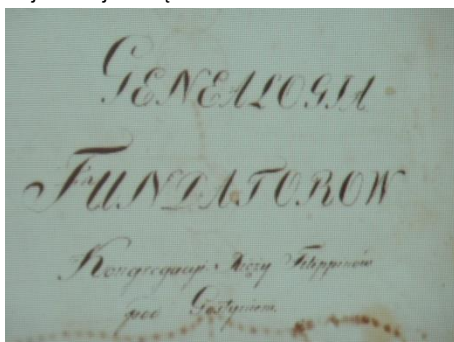 GENEALOGIA
FUNDATOROW
Kongregacyi Xięży Filippinow
pod Gostyniem.